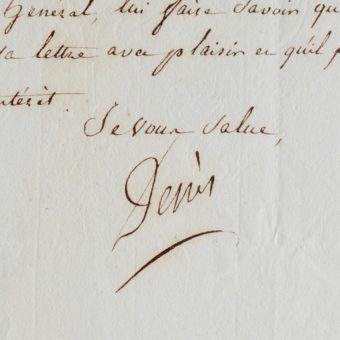 Général, lui faire Savoir qu
sa lettre avec plaisir et qu'il
intérêt.
Je vous Salue,
Denis